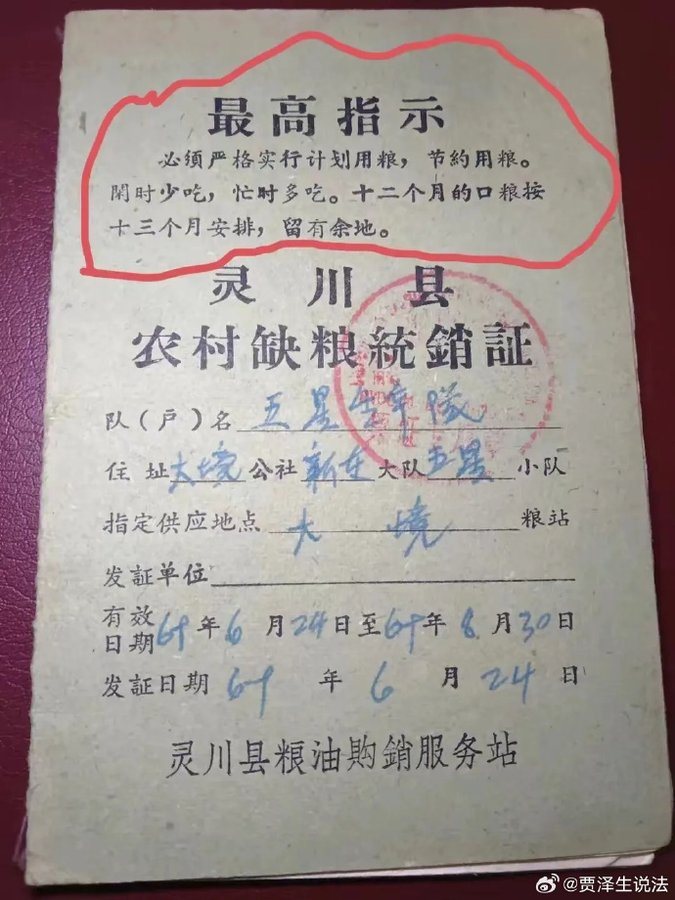 最高指示
必须严格实行计划用粮，节約用粮。
閑时少吃，忙时多吃。十二个月的口粮按
十三个月安排，留有余地。
灵川县
农村缺粮統銷証
队（戶）名 五星生产隊
住址 大境 公社 新在 大队 五星 小队
指定供应地点 大境 粮站
发証单位
有效日期 69年6月24日至69年8月30日
发証日期 69年6月24日
灵川县粮油购銷服务站
@贾泽生说法